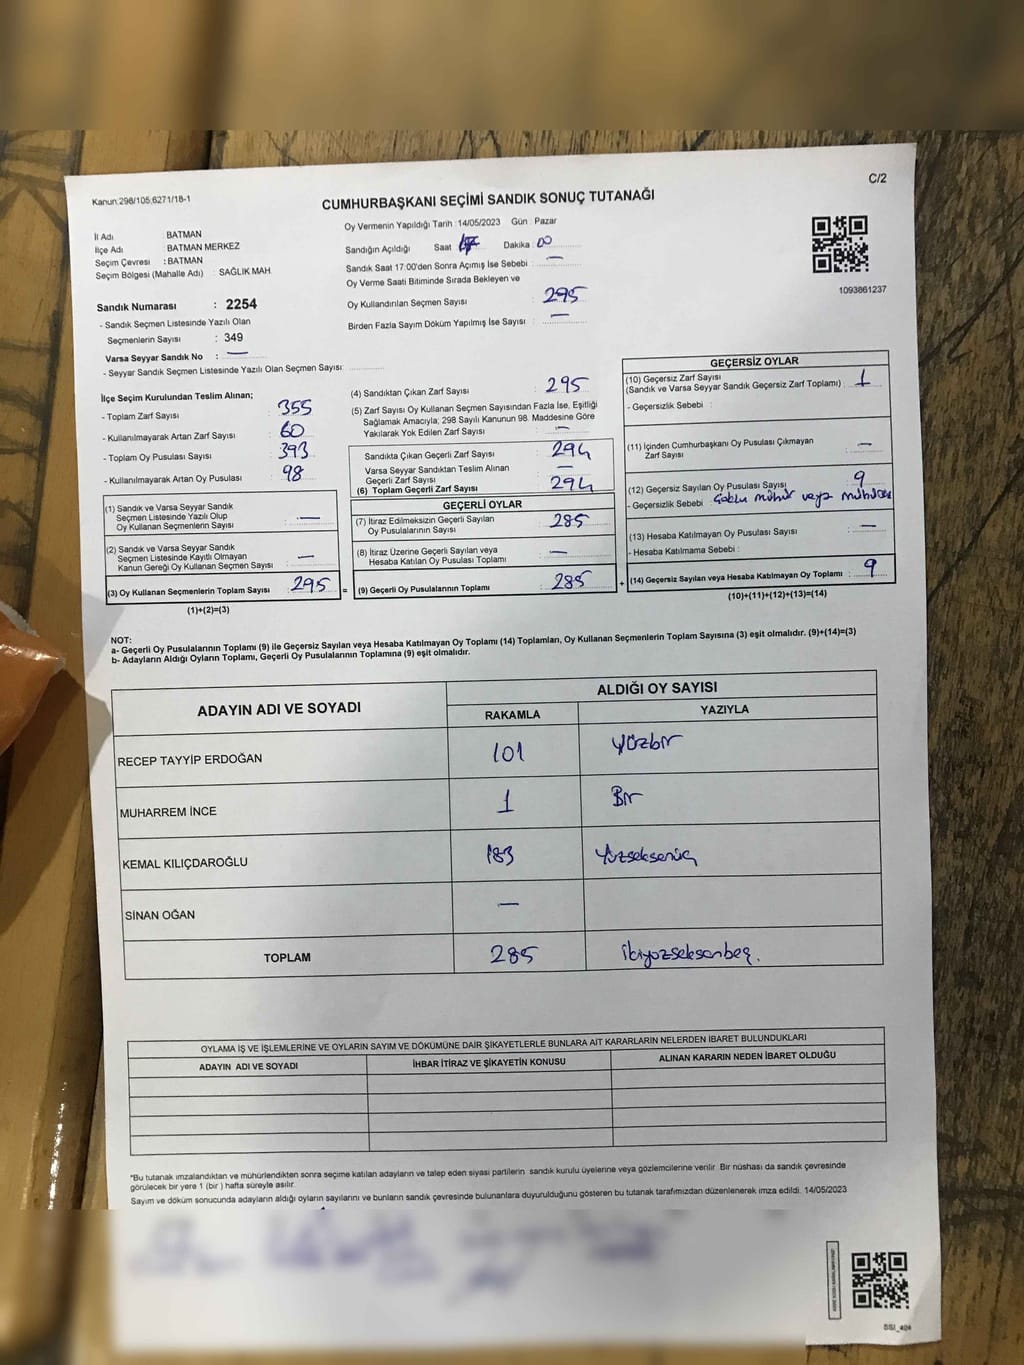 Kanun:298/105;6271/18-1
C/2
CUMHURBAŞKANI SEÇİMİ SANDIK SONUÇ TUTANAĞI
İl Adı : BATMAN
İlçe Adı : BATMAN MERKEZ
Seçim Çevresi : BATMAN
Seçim Bölgesi (Mahalle Adı) : SAĞLIK MAH.
Sandık Numarası : 2254
- Sandık Seçmen Listesinde Yazılı Olan
Seçmenlerin Sayısı : 349
Varsa Seyyar Sandık No : —
- Seyyar Sandık Seçmen Listesinde Yazılı Olan Seçmen Sayısı:
Oy Vermenin Yapıldığı Tarih : 14/05/2023 Gün : Pazar
Sandığın Açıldığı Saat 17 Dakika : 00
Sandık Saat 17:00'den Sonra Açımış İse Sebebi : —
Oy Verme Saati Bitiminde Sırada Bekleyen ve
Oy Kullandırılan Seçmen Sayısı : 295
Birden Fazla Sayım Döküm Yapılmış İse Sayısı : —
1093861237
İlçe Seçim Kurulundan Teslim Alınan;
- Toplam Zarf Sayısı : 355
- Kullanılmayarak Artan Zarf Sayısı : 60
- Toplam Oy Pusulası Sayısı : 393
- Kullanılmayarak Artan Oy Pusulası : 98
(1) Sandık ve Varsa Seyyar Sandık
Seçmen Listesinde Yazılı Olup
Oy Kullanan Seçmenlerin Sayısı : —
(2) Sandık ve Varsa Seyyar Sandık
Seçmen Listesinde Kayıtlı Olmayan
Kanun Gereği Oy Kullanan Seçmen Sayısı : —
(3) Oy Kullanan Seçmenlerin Toplam Sayısı : 295
(1)+(2)=(3)
(4) Sandıktan Çıkan Zarf Sayısı : 295
(5) Zarf Sayısı Oy Kullanan Seçmen Sayısından Fazla İse, Eşitliği
Sağlamak Amacıyla; 298 Sayılı Kanunun 98. Maddesine Göre
Yakılarak Yok Edilen Zarf Sayısı : —
Sandıkta Çıkan Geçerli Zarf Sayısı : 294
Varsa Seyyar Sandıktan Teslim Alınan
Geçerli Zarf Sayısı : —
(6) Toplam Geçerli Zarf Sayısı : 294
GEÇERLİ OYLAR
(7) İtiraz Edilmeksizin Geçerli Sayılan
Oy Pusulalarının Sayısı : 285
(8) İtiraz Üzerine Geçerli Sayılan veya
Hesaba Katılan Oy Pusulası Toplamı : —
= (9) Geçerli Oy Pusulalarının Toplamı : 285
GEÇERSİZ OYLAR
(10) Geçersiz Zarf Sayısı
(Sandık ve Varsa Seyyar Sandık Geçersiz Zarf Toplamı) : 1
- Geçersizlik Sebebi :
(11) İçinden Cumhurbaşkanı Oy Pusulası Çıkmayan
Zarf Sayısı : —
(12) Geçersiz Sayılan Oy Pusulası Sayısı : 9
- Geçersizlik Sebebi : mühür veya
(13) Hesaba Katılmayan Oy Pusulası Sayısı : —
- Hesaba Katılmama Sebebi :
+ (14) Geçersiz Sayılan veya Hesaba Katılmayan Oy Toplamı : 9
(10)+(11)+(12)+(13)=(14)
NOT:
a- Geçerli Oy Pusulalarının Toplamı (9) ile Geçersiz Sayılan veya Hesaba Katılmayan Oy Toplamı (14) Toplamları, Oy Kullanan Seçmenlerin Toplam Sayısına (3) eşit olmalıdır. (9)+(14)=(3)
b- Adayların Aldığı Oyların Toplamı, Geçerli Oy Pusulalarının Toplamına (9) eşit olmalıdır.
ADAYIN ADI VE SOYADI
ALDIĞI OY SAYISI
RAKAMLA YAZIYLA
RECEP TAYYİP ERDOĞAN 101 Yüzbir
MUHARREM İNCE 1 Bir
KEMAL KILIÇDAROĞLU 183 Yüzseksenüç
SİNAN OĞAN —
TOPLAM 285 ikiyüzseksenbeş.
OYLAMA İŞ VE İŞLEMLERİNE VE OYLARIN SAYIM VE DÖKÜMÜNE DAİR ŞİKAYETLERLE BUNLARA AİT KARARLARIN NELERDEN İBARET BULUNDUKLARI
ADAYIN ADI VE SOYADI İHBAR İTİRAZ VE ŞİKAYETİN KONUSU ALINAN KARARIN NEDEN İBARET OLDUĞU
*Bu tutanak imzalandıktan ve mühürlendikten sonra seçime katılan adayların ve talep eden siyasi partilerin sandık kurulu üyelerine veya gözlemcilerine verilir. Bir nüshası da sandık çevresinde
görülecek bir yere 1 (bir ) hafta süreyle asılır.
Sayım ve döküm sonucunda adayların aldığı oyların sayılarını ve bunların sandık çevresinde bulunanlara duyurulduğunu gösteren bu tutanak tarafımızdan düzenlenerek imza edildi. 14/05/2023